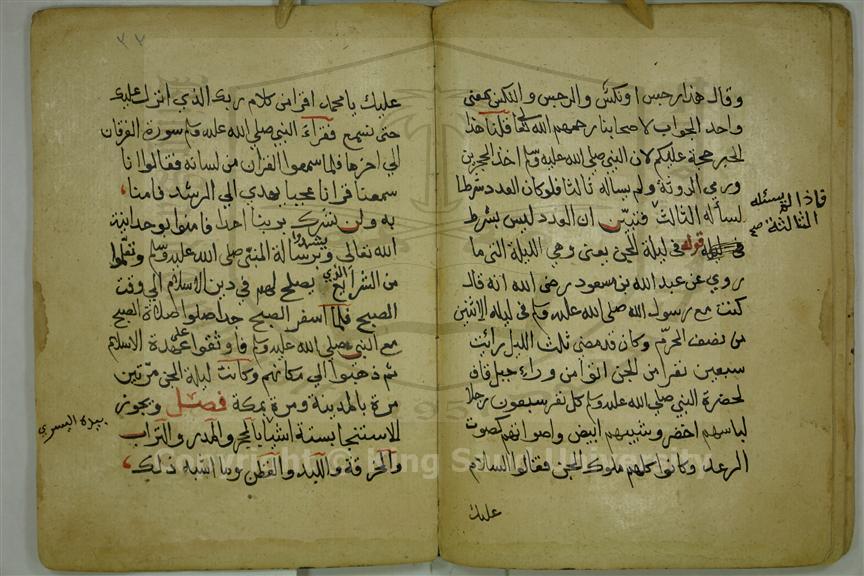 وقال هذا رجس او نكس والرجس والنكس بمعنى
واحد الجواب لاصحابنا رحمهم الله تعالى قلنا هذا
الخبر حجة عليكم لان النبي صلى الله عليه وسلم اخذ الحجرين
ورمى الروثة ولم يساله ثالثا فلو كان العدد شرطا
لساله الثالث فتبين ان العدد ليس بشرط
قوله في ليلة الجن يعني وهي الليلة التي ما
روي عن عبد الله بن مسعود رضي الله انه قال
كنت مع رسول الله صلى الله عليه وسلم في ليلة الاثنين
من نصف المحرم وكان قد مضى ثلث الليل رايت
سبعين نفرا من الجن اتوا من وراء جبل قاف
لحضرة النبي صلى الله عليه وسلم كل نفر سبعون رجلا
لباسهم اخضر وشيبهم ابيض واصواتهم كصوت
الرعد وكانوا كلهم ملوك الجن فقالوا السلام
عليك
فاذا لم يسئله
الثالثة صح
٣٣
عليك يا محمد اقرا من كلام ربك الذي انزل عليك
حتى نسمع فقراء النبي صلى الله عليه وسلم سورة الفرقان
الى اخرها فلما سمعوا القران من لسانه فقالوا انا
سمعنا قرانا عجبا يهدي الى الرشد فامنا
به ولن نشرك بربنا احدا فامنوا بوحدانية
الله تعالى وبرسالة النبي صلى الله عليه وسلم وتعلموا
من الشرايع الذي يصلح لهم في دين الاسلام الى وقت
الصبح فلما اسفر الصبح جدا صلوا صلاة الصبح
مع النبي صلى الله عليه وسلم فاوثقوا على عهدة الاسلام
ثم ذهبوا الى مكانهم وكانت ليلة الجن مرتين
مرة بالمدينة ومرة بمكة فصل ويجوز
الاستنجا بستة اشيا بالحجر والمدر والتراب
والخرقة واللبد والقطن وما اشبه ذلك
بيده اليسرى
Copyright © King Saud University